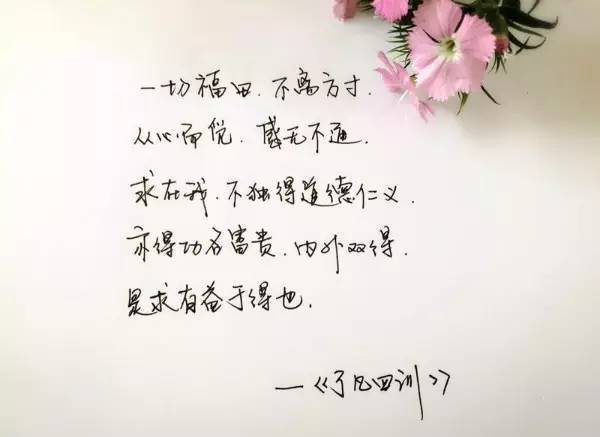 一切福田.不离方寸.
从心而觅.感无不通.
求在我.不独得道德仁义.
亦得功名富贵.内外双得.
是求有益于得也.
—《了凡四训》